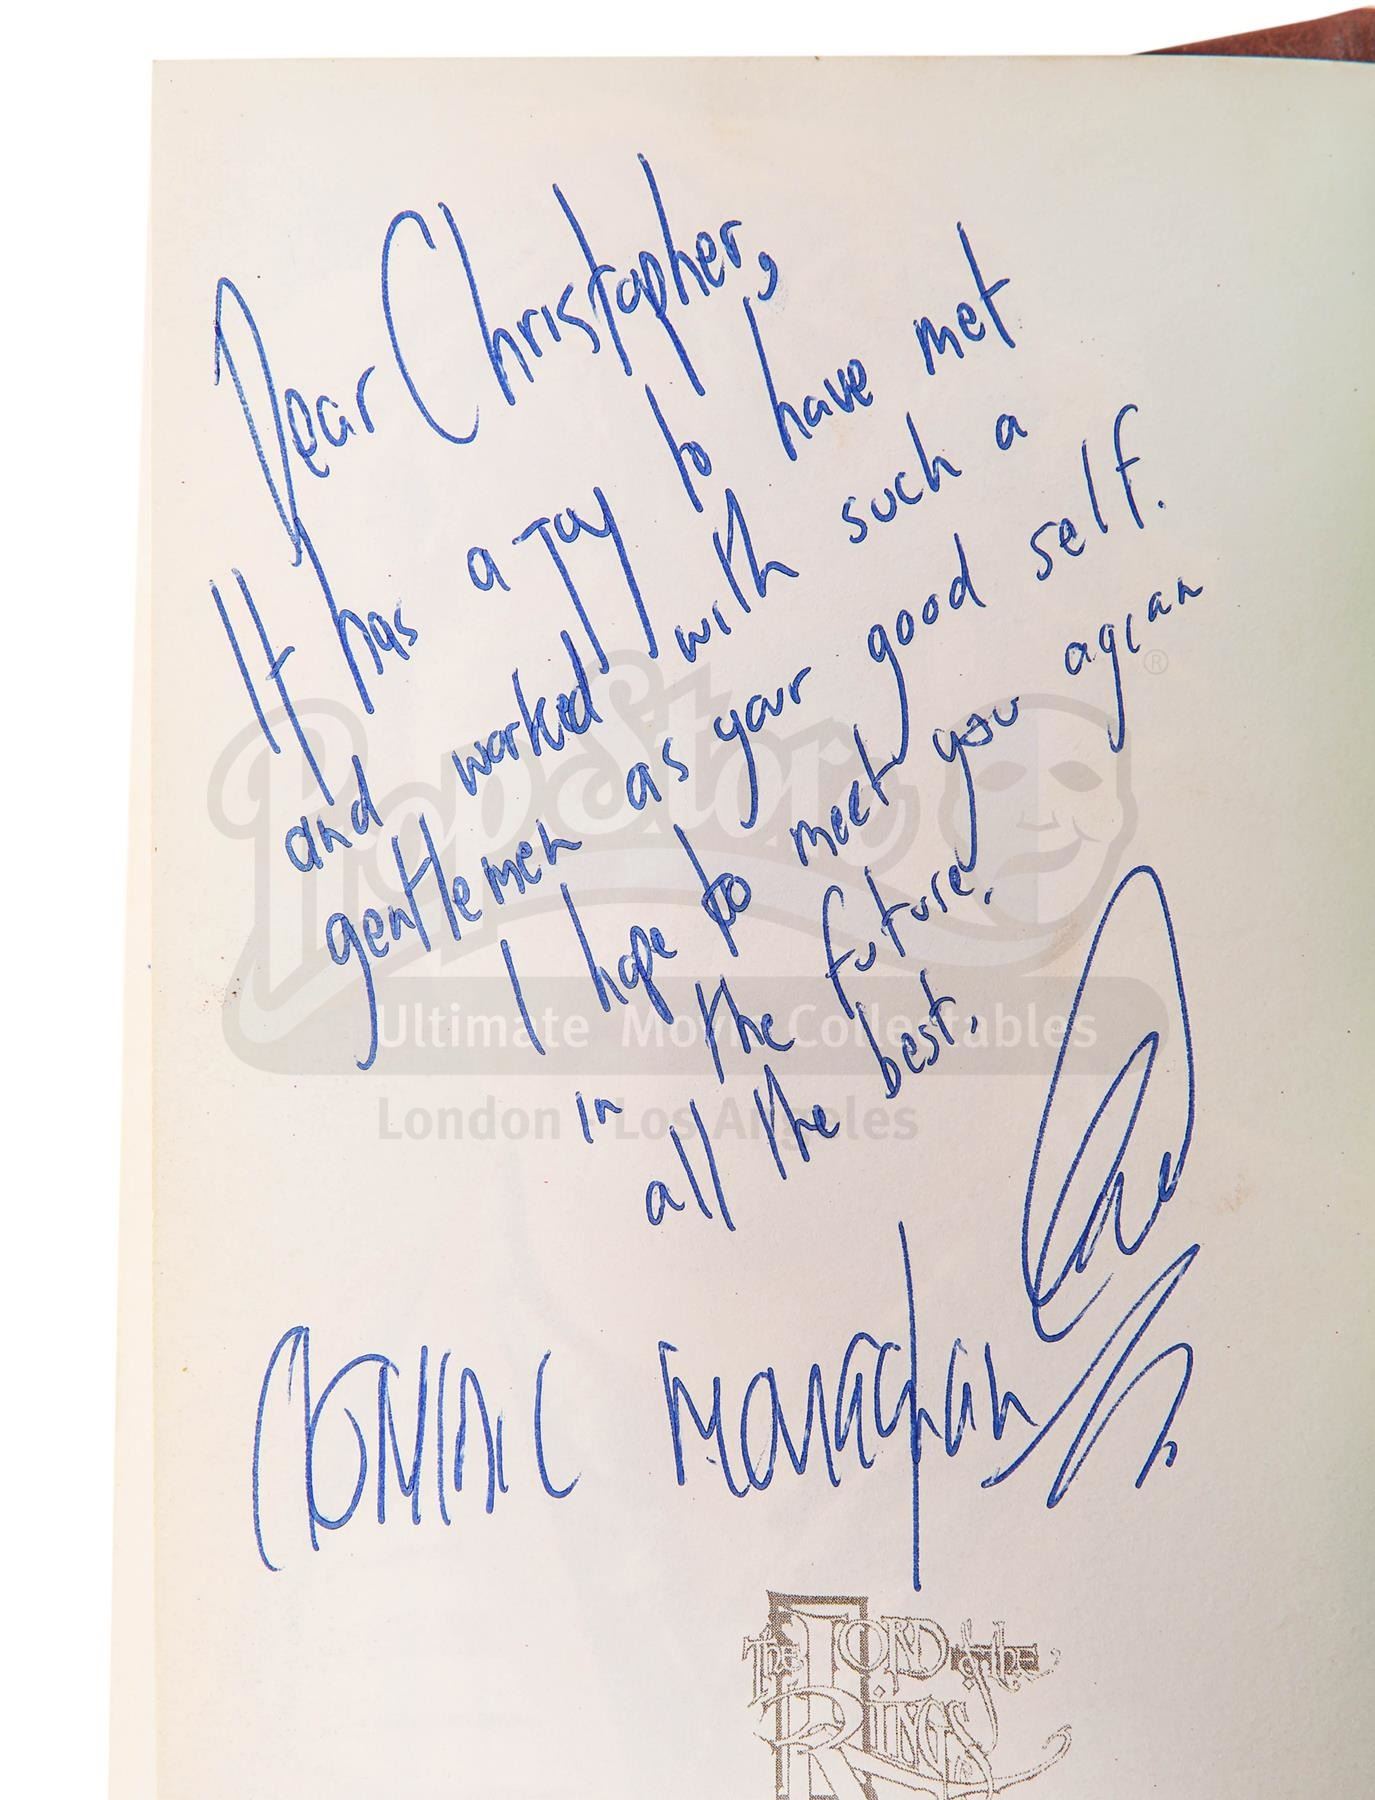 Dear Christopher,
It has a joy to have met
and worked with such a
gentlemen as your good self.
I hope to meet you agian
in the future.
all the best,
DOMINIC MONAGHAN
THE LORD of the
RINGS
PopStore
®
Ultimate Movie Collectables
London Los Angeles